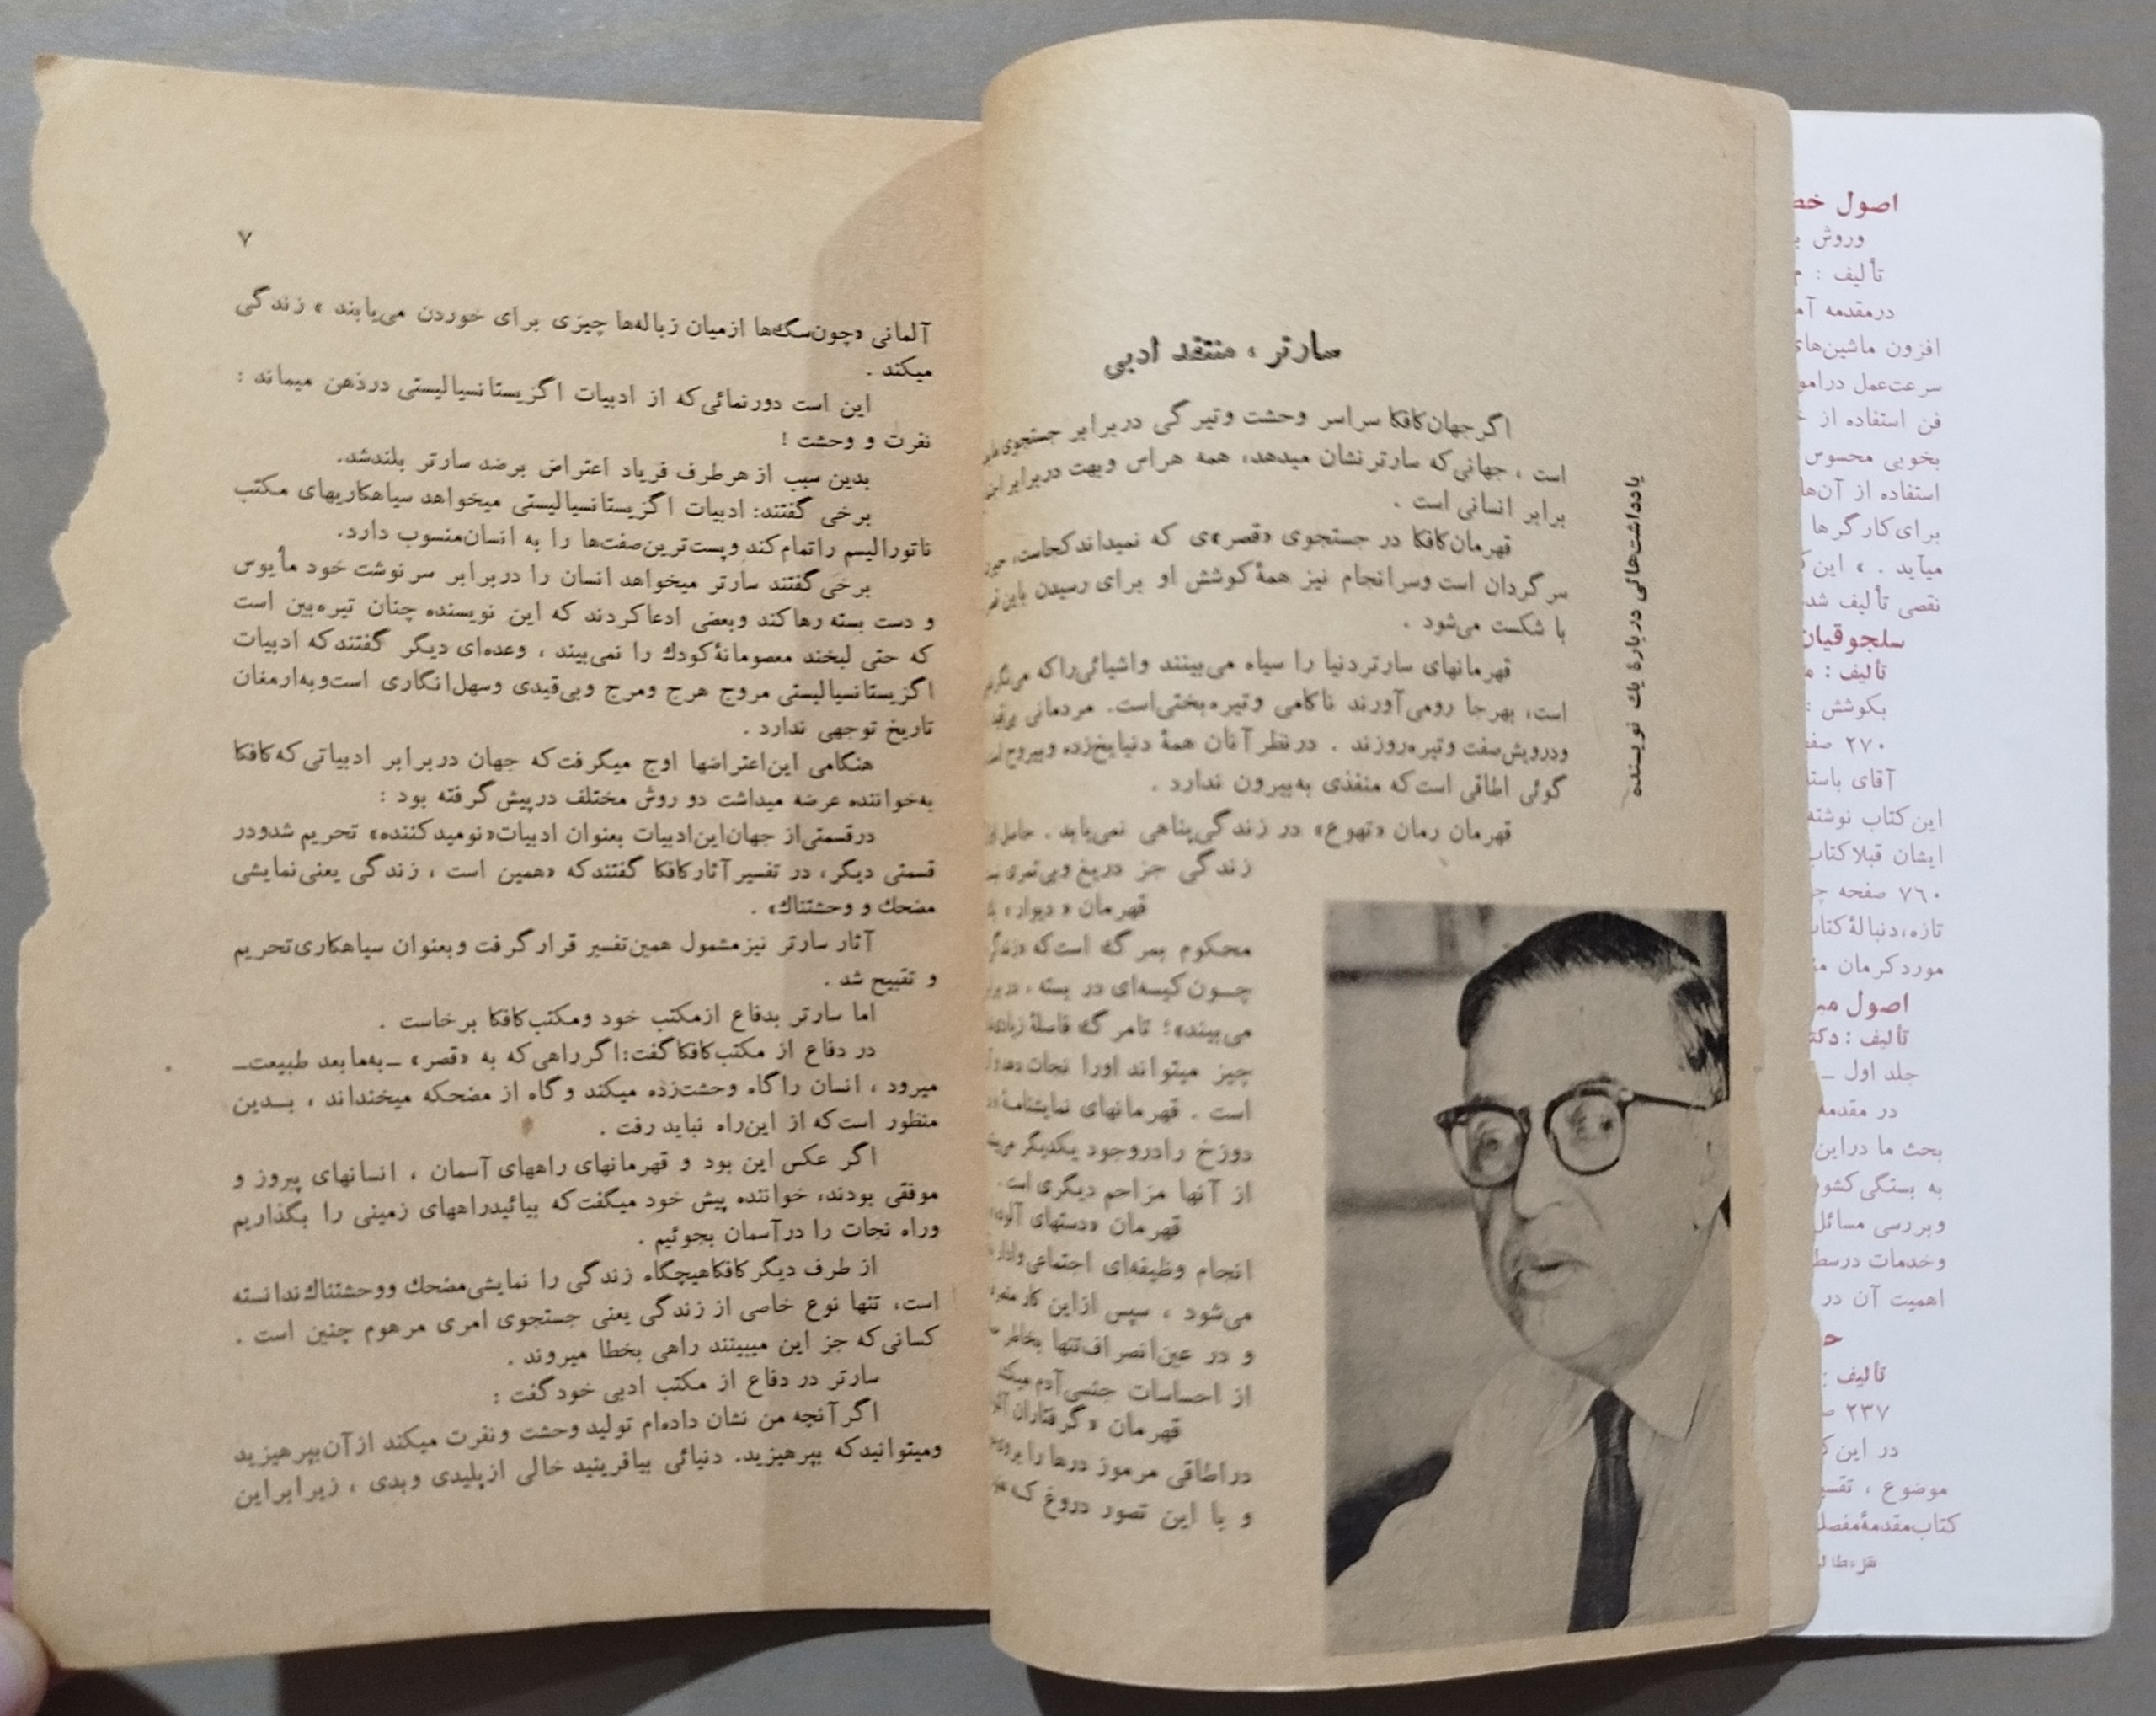 سارتر ، منتقد ادبی
یادداشت‌هائی دربارهٔ یك نویسنده
اگرجهان‌کافکا سراسر وحشت وتیرگی دربرابر جستجوی
است ، جهانی‌که سارترنشان میدهد، همه هراس وبهت دربرابر
برابر انسانی است .
قهرمان‌کافکا در جستجوی «قصر»ی که نمیداندکجاست،
سرگردان است وسرانجام نیز همهٔ‌کوشش او برای رسیدن باین
با شکست می‌شود .
قهرمانهای سارتردنیا را سیاه می‌بینند واشیائی‌راکه
است، بهرجا رومی‌آورند ناکامی وتیره‌بختی‌است. مردمانی
ودرویش‌صفت وتیره‌روزند . درنظرآنان همهٔ دنیایخ‌زده وبیروح
گوئی اطاقی است‌که منفذی به‌بیرون ندارد .
قهرمان رمان «تهوع» در زندگی‌پناهی نمی‌یابد .
زندگی جز دریغ وبی‌ثمری
قهرمان « دیوار»
محکوم بمرگ است‌که
چــون‌کیسه‌ای در بسته ،
می‌بیند»؛ تامرگ فاصلهٔ
چیز میتواند اورا نجات
است . قهرمانهای نمایشنامهٔ
دوزخ رادروجود یکدیگر
از آنها مزاحم دیگری است.
قهرمان «دستهای آلوده»
انجام وظیفه‌ای اجتماعی
می‌شود ، سپس ازاین کار
و در عین‌انصراف‌تنها بخاطر
از احساسات جنسی‌آدم میکشد
قهرمان « گرفتاران
دراطاقی مرموز درها را
و با این تصور دروغ که
۷
آلمانی «چون‌سگ‌ها ازمیان زباله‌ها چیزی برای خوردن می‌یابند » زندگی
میکند .
این است دورنمائی‌که از ادبیات اگزیستانسیالیستی درذهن میماند :
نفرت و وحشت !
بدین سبب از هرطرف فریاد اعتراض برضد سارتر بلندشد.
برخی گفتند: ادبیات اگزیستانسیالیستی میخواهد سیاهکاریهای مکتب
ناتورالیسم راتمام‌کند وپست‌ترین‌صفت‌ها را به انسان‌منسوب دارد.
برخی‌گفتند سارتر میخواهد انسان را دربرابر سرنوشت خود مأیوس
و دست بسته رهاکند وبعضی ادعاکردند که این نویسنده چنان تیره‌بین است
که حتی لبخند معصومانهٔ‌کودك را نمی‌بیند ، وعده‌ای دیگر گفتندکه ادبیات
اگزیستانسیالیستی مروج هرج ومرج وبی‌قیدی وسهل‌انگاری است‌وبه‌ارمغان
تاریخ توجهی ندارد .
هنگامی این‌اعتراضها اوج میگرفت‌که جهان دربرابر ادبیاتی‌که‌کافکا
به‌خواننده عرضه میداشت دو روش مختلف درپیش‌گرفته بود :
درقسمتی‌از جهان‌این‌ادبیات بعنوان ادبیات«نومیدکننده» تحریم شدودر
قسمتی دیگر، در تفسیرآثارکافکا گفتندکه «همین است ، زندگی یعنی‌نمایشی
مضحك و وحشتناك» .
آثار سارتر نیزمشمول همین‌تفسیر قرارگرفت وبعنوان سیاهکاری‌تحریم
و تقبیح شد .
اما سارتر بدفاع ازمکتب خود ومکتب‌کافکا برخاست .
در دفاع از مکتب‌کافکاگفت:اگرراهی‌که به «قصر» ـ‌به‌مابعد طبیعت‌ـ
میرود ، انسان راگاه وحشت‌زده میکند وگاه از مضحکه میخنداند ، بــدین
منظور است‌که از این‌راه نباید رفت .
اگر عکس این بود و قهرمانهای راههای آسمان ، انسانهای پیروز و
موفقی بودند، خواننده پیش خود میگفت‌که بیائیدراههای زمینی را بگذاریم
وراه نجات را درآسمان بجوئیم .
از طرف دیگرکافکاهیچگاه زندگی را نمایشی‌مضحك ووحشتناك‌ندانسته
است، تنها نوع خاصی از زندگی یعنی جستجوی امری مرهوم چنین است .
کسانی‌که جز این میبینند راهی بخطا میروند .
سارتر در دفاع از مکتب ادبی خودگفت :
اگرآنچه من نشان داده‌ام تولید وحشت ونفرت میکند ازآن‌بپرهیزید
ومیتوانیدکه بپرهیزید. دنیائی بیافرینید خالی ازپلیدی وبدی ، زیرابراین
اصول
وروش
تألیف :
درمقدمه
افزون ماشین‌های
سرعت‌عمل درامو
فن استفاده از
بخوبی محسوس
استفاده از آن‌ها
برای‌کارگرها
میآید . » این
نقصی تألیف شد
سلجوقیان
تألیف :
بکوشش :
۲۷۰
آقای
این‌کتاب نوشته
ایشان قبلاکتاب
۷۶۰ صفحه
تازه،دنبالهٔ‌کتاب
موردکرمان
اصول
تألیف :
جلد اول ـ
در مقدمه
بحث ما دراین
به بستگی
وبررسی مسائل
وخدمات
اهمیت آن در
تألیف :
۲۳۷
در این
موضوع ،
کتاب‌مقدمهٔ‌مفصل